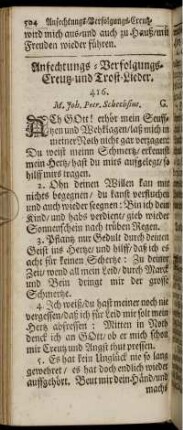 504 Anfechtungs-Verfolgungs-Creutz-
wird mich aus- und auch zu Hauß mit
Freuden wieder führen.
Anfechtungs- Verfolgungs-
Creutz- und Trost-Lieder.
416.
M. Joh. Petr. Scheffius. G.
ACh GOtt! erhör mein Seuff-
zen und Wehklagen/ laß mich in
meiner Noth nicht gar verzagen:
Du weist meinen Schmertz/ erkennst
mein Hertz/ hast du mirs aufgelegt/ so
hilf mirs tragen.
2. Ohn deinen Willen kan mir
nichts begegnen/ du kanst verfluchen
und auch wieder segnen: Bin ich dein
Kind/ und habs verdient/ gieb wieder
Sonnenschein nach trüben Regen.
3. Pflantz nur Gedult durch deinen
Geist ins Hertze/ und hilff/ daß ich es
acht für keinen Schertze: Zu deiner
Zeit/ wend all mein Leid/ durch Marck
und Bein dringt mir der grosse
Schmertze.
4. Ich weiß/ du hast meiner noch nie
vergessen/ daß ich für Leid mir solt mein
Hertz abfressen: Mitten in Noth
denck ich an GOtt/ ob er mich schon
mit Creutz und Angst thut pressen.
5. Es hat kein Unglück nie so lang
gewehret/ es hat doch endlich wieder
aufgehört. Beut mir dein Händ/ und
machs